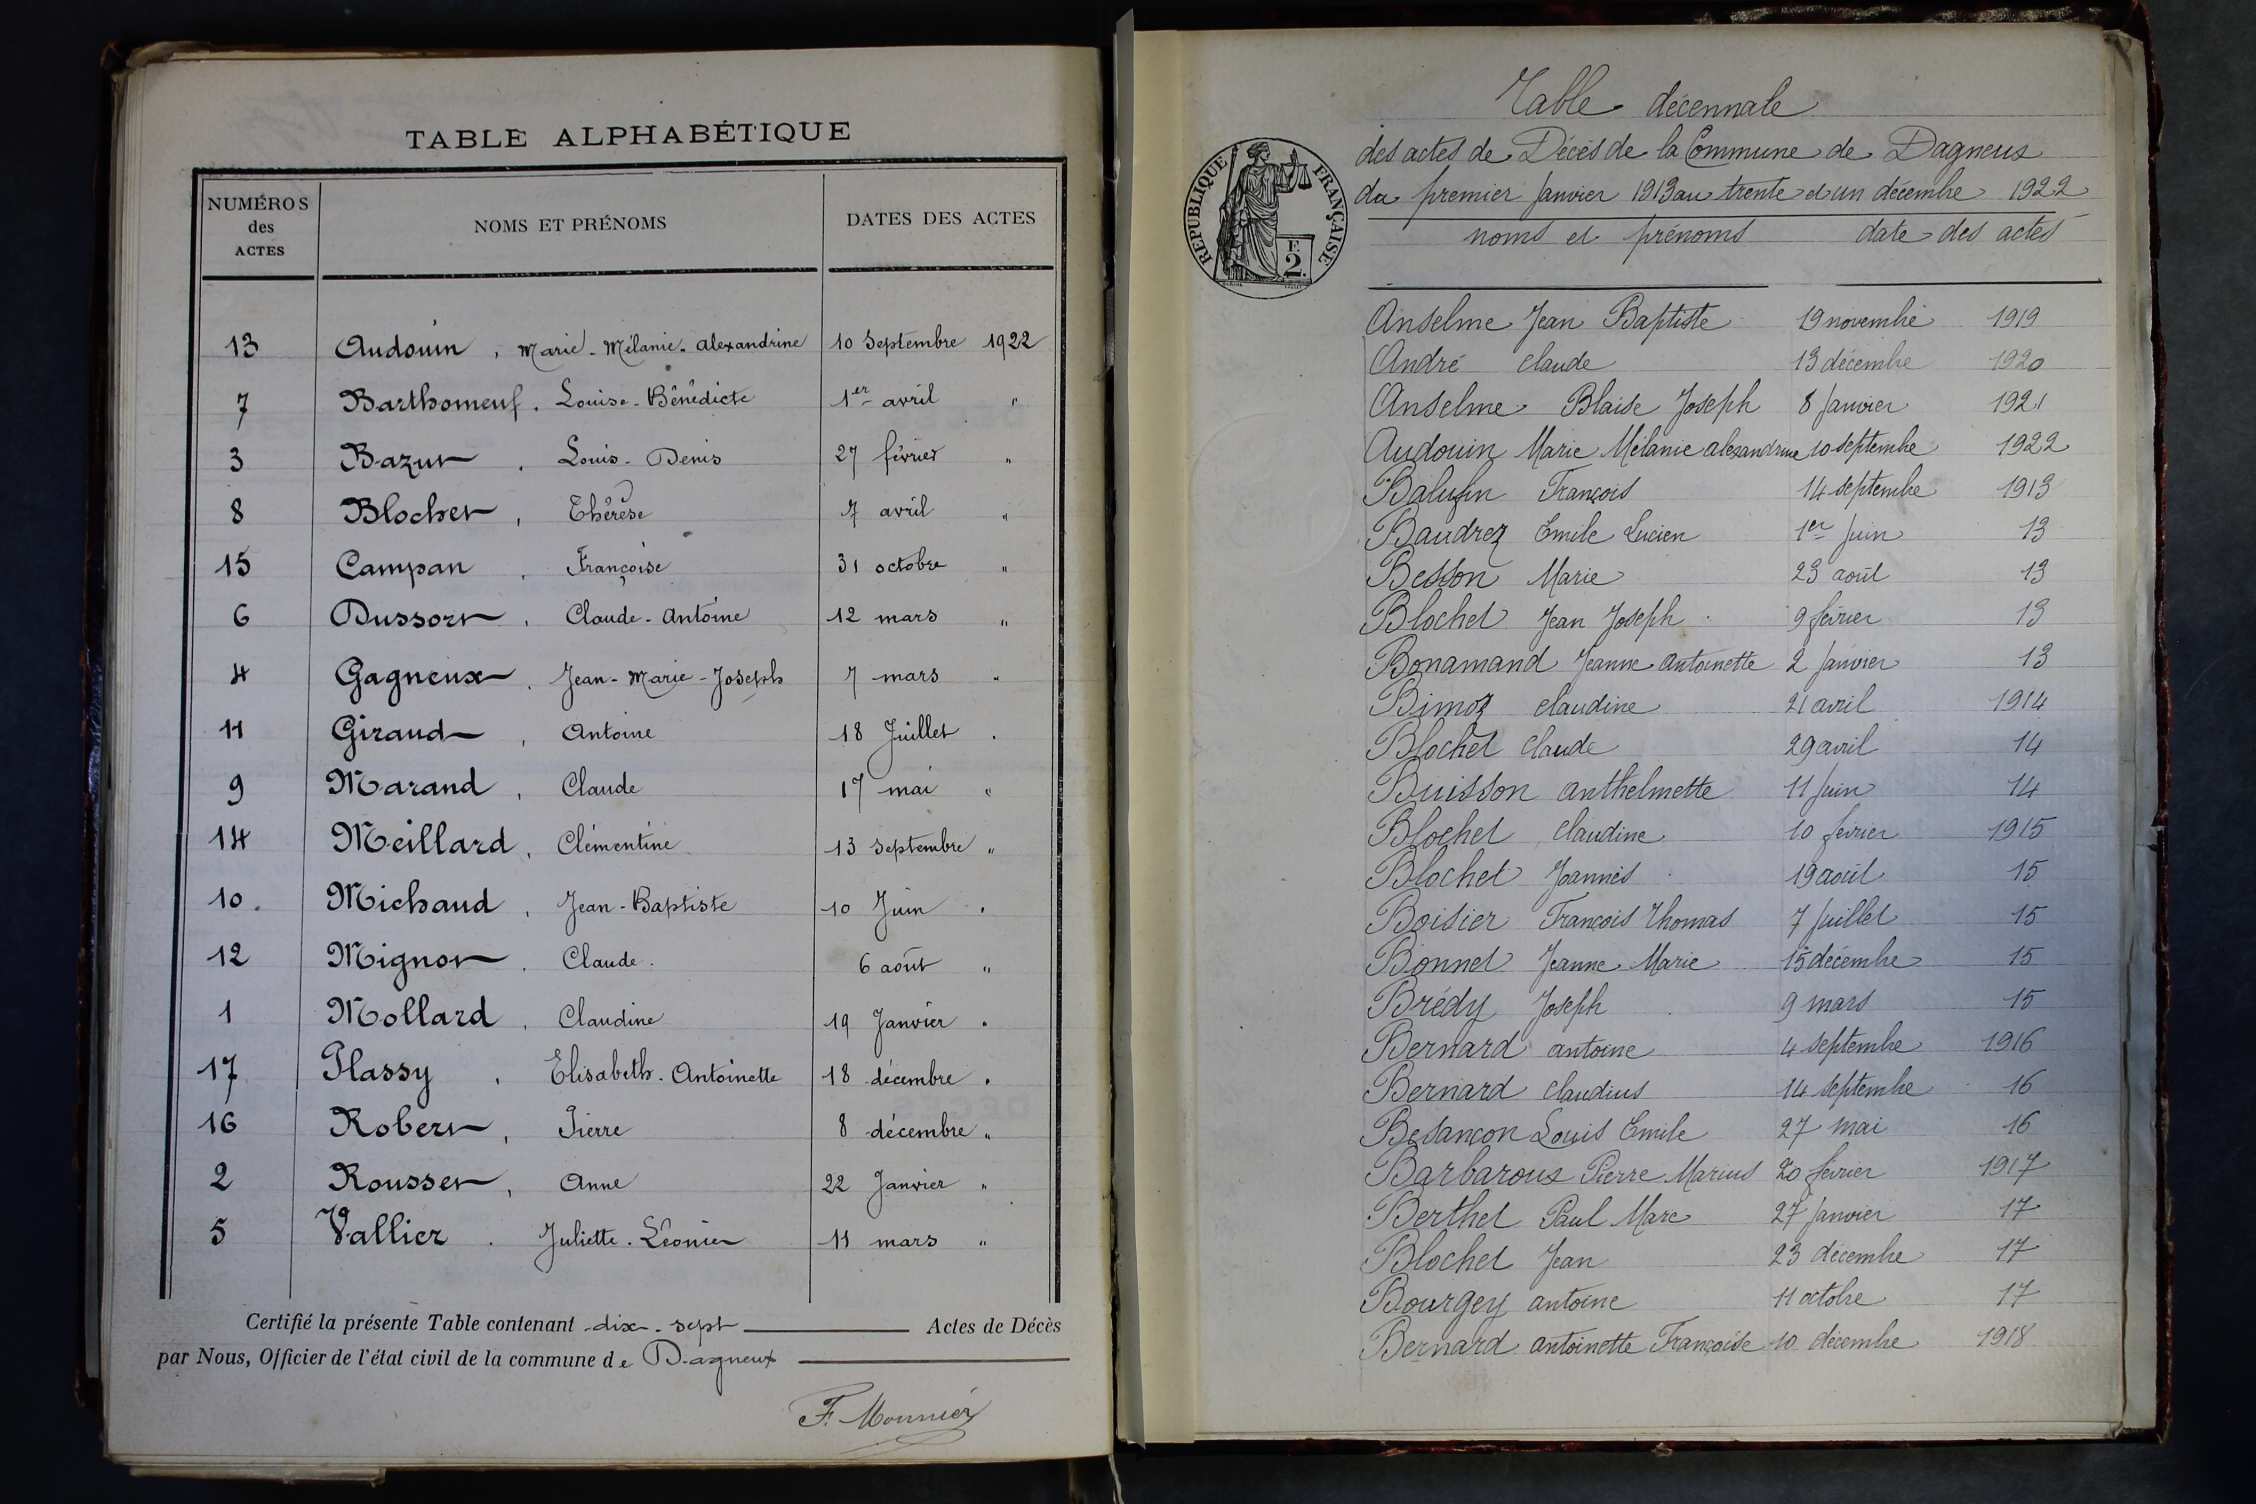 TABLE ALPHABÉTIQUE
NUMÉROS des ACTES NOMS ET PRÉNOMS DATES DES ACTES
13 Audouin, Marie-Mélanie-Alexandrine 10 Septembre 1922
7 Barthomeuf, Louise-Bénédicte 1er avril "
3 Bazur, Louis-Denis 27 février "
8 Blochet, Thérèse 7 avril "
15 Campan, Françoise 31 octobre "
6 Dussort, Claude-Antoine 12 mars "
4 Gagneux, Jean-Marie-Joseph 7 mars "
11 Giraud, Antoine 18 Juillet "
9 Marand, Claude 17 mai "
14 Meillard, Clémentine 13 Septembre "
10 Michaud, Jean-Baptiste 10 Juin "
12 Mignot, Claude 6 août "
1 Mollard, Claudine 19 Janvier "
17 Plassy, Elisabeth-Antoinette 18 décembre "
16 Robert, Pierre 8 décembre "
2 Rousset, Anne 22 Janvier "
5 Vallier, Juliette-Léonie 11 mars "
Certifié la présente Table contenant dix-sept Actes de Décès
par Nous, Officier de l'état civil de la commune de Dagneux
F. Monnier
RÉPUBLIQUE FRANÇAISE
2 F.
Table décennale
des actes de Décès de la Commune de Dagneux
du premier Janvier 1913 au trente et un décembre 1922
noms et prénoms date des actes
Anselme Jean Baptiste 19 novembre 1919
André Claude 13 décembre 1920
Anselme Blaise Joseph 8 Janvier 1921
Audouin Marie Mélanie alexandrine 10 septembre 1922
Balufin François 14 septembre 1913
Baudrez Emile Lucien 1er Juin 13
Besson Marie 23 août 13
Blochet Jean Joseph 9 février 13
Bonamand Jeanne Antoinette 2 Janvier 13
Bimoz Claudine 21 avril 1914
Blochet Claude 29 avril 14
Buisson anthelmette 11 Juin 14
Blochet Claudine 10 février 1915
Blochet Joannès 19 août 15
Boisier François Thomas 7 Juillet 15
Bonnet Jeanne Marie 15 décembre 15
Brédy Joseph 9 mars 15
Bernard antoine 4 septembre 1916
Bernard Claudius 14 septembre 16
Besançon Louis Emile 27 mai 16
Barbaroux Pierre Marius 20 février 1917
Berthet Paul Marc 27 Janvier 17
Blochet Jean 23 décembre 17
Bourgey antoine 11 octobre 17
Bernard antoinette Françoise 10 décembre 1918